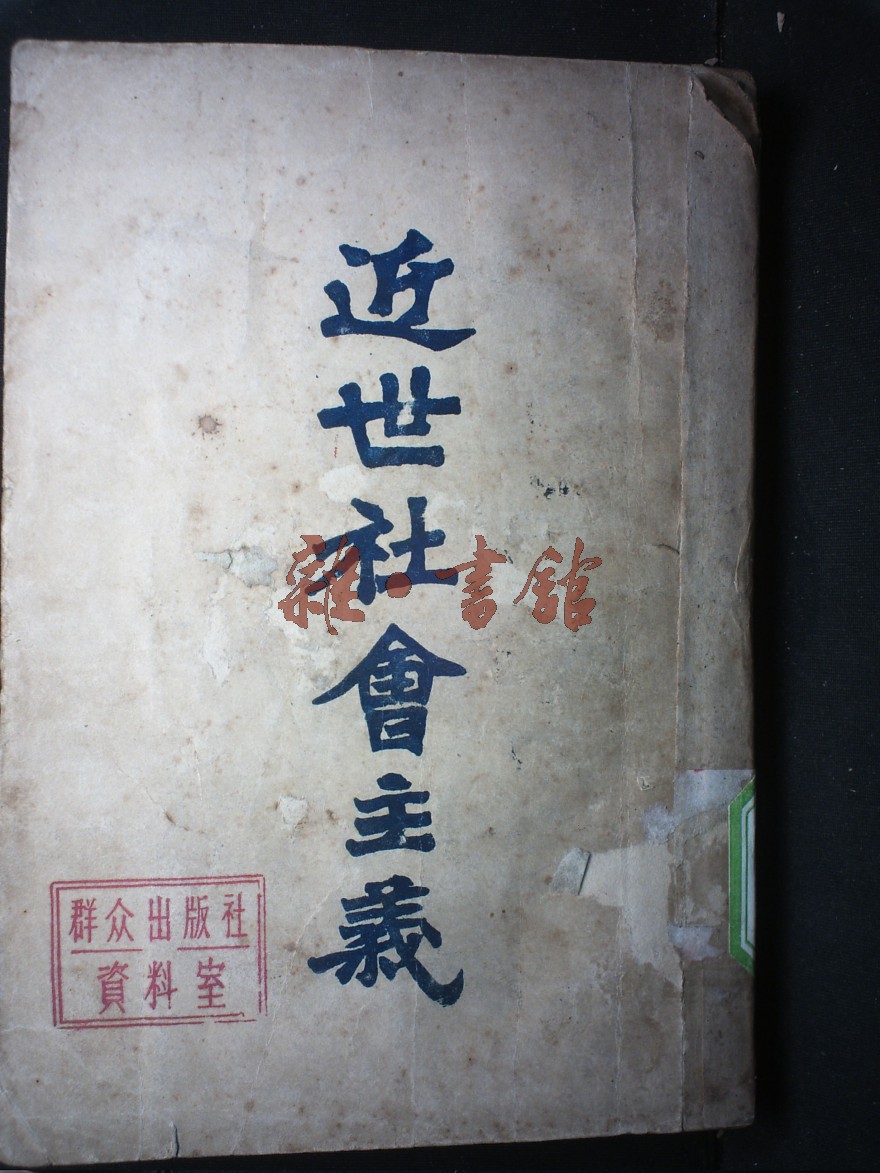 近世社會主義
雜·書館
群众出版社
資料室